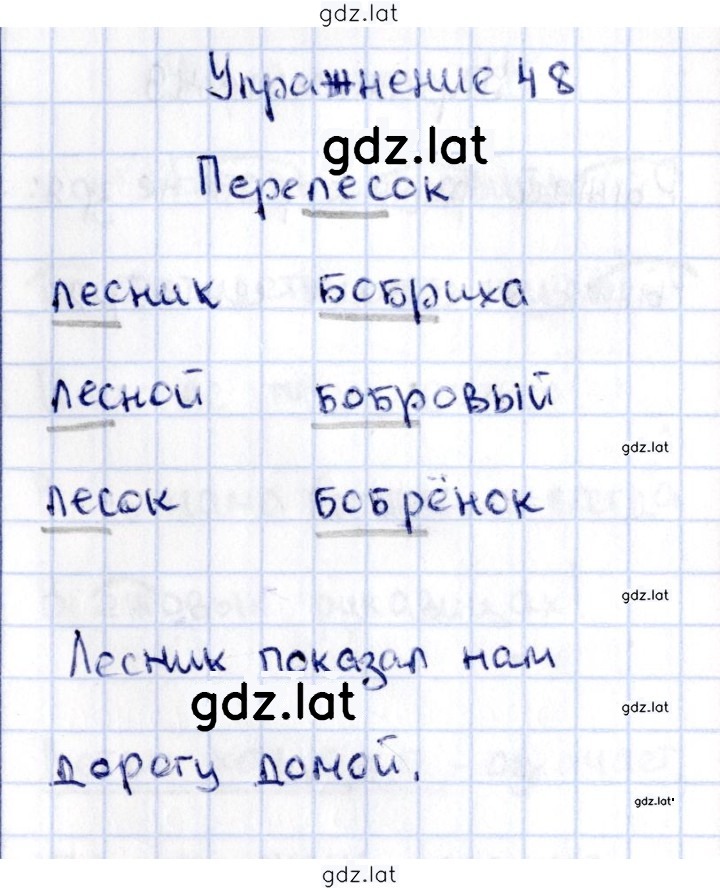 gdz.lat
Упражнение 48
gdz.lat
Перелесок
лесник бобриха
лесной бобровый
gdz.lat
лесок бобрёнок
gdz.lat
Лесник показал нам
gdz.lat
gdz.lat
дорогу домой.
gdz.lat
gdz.lat